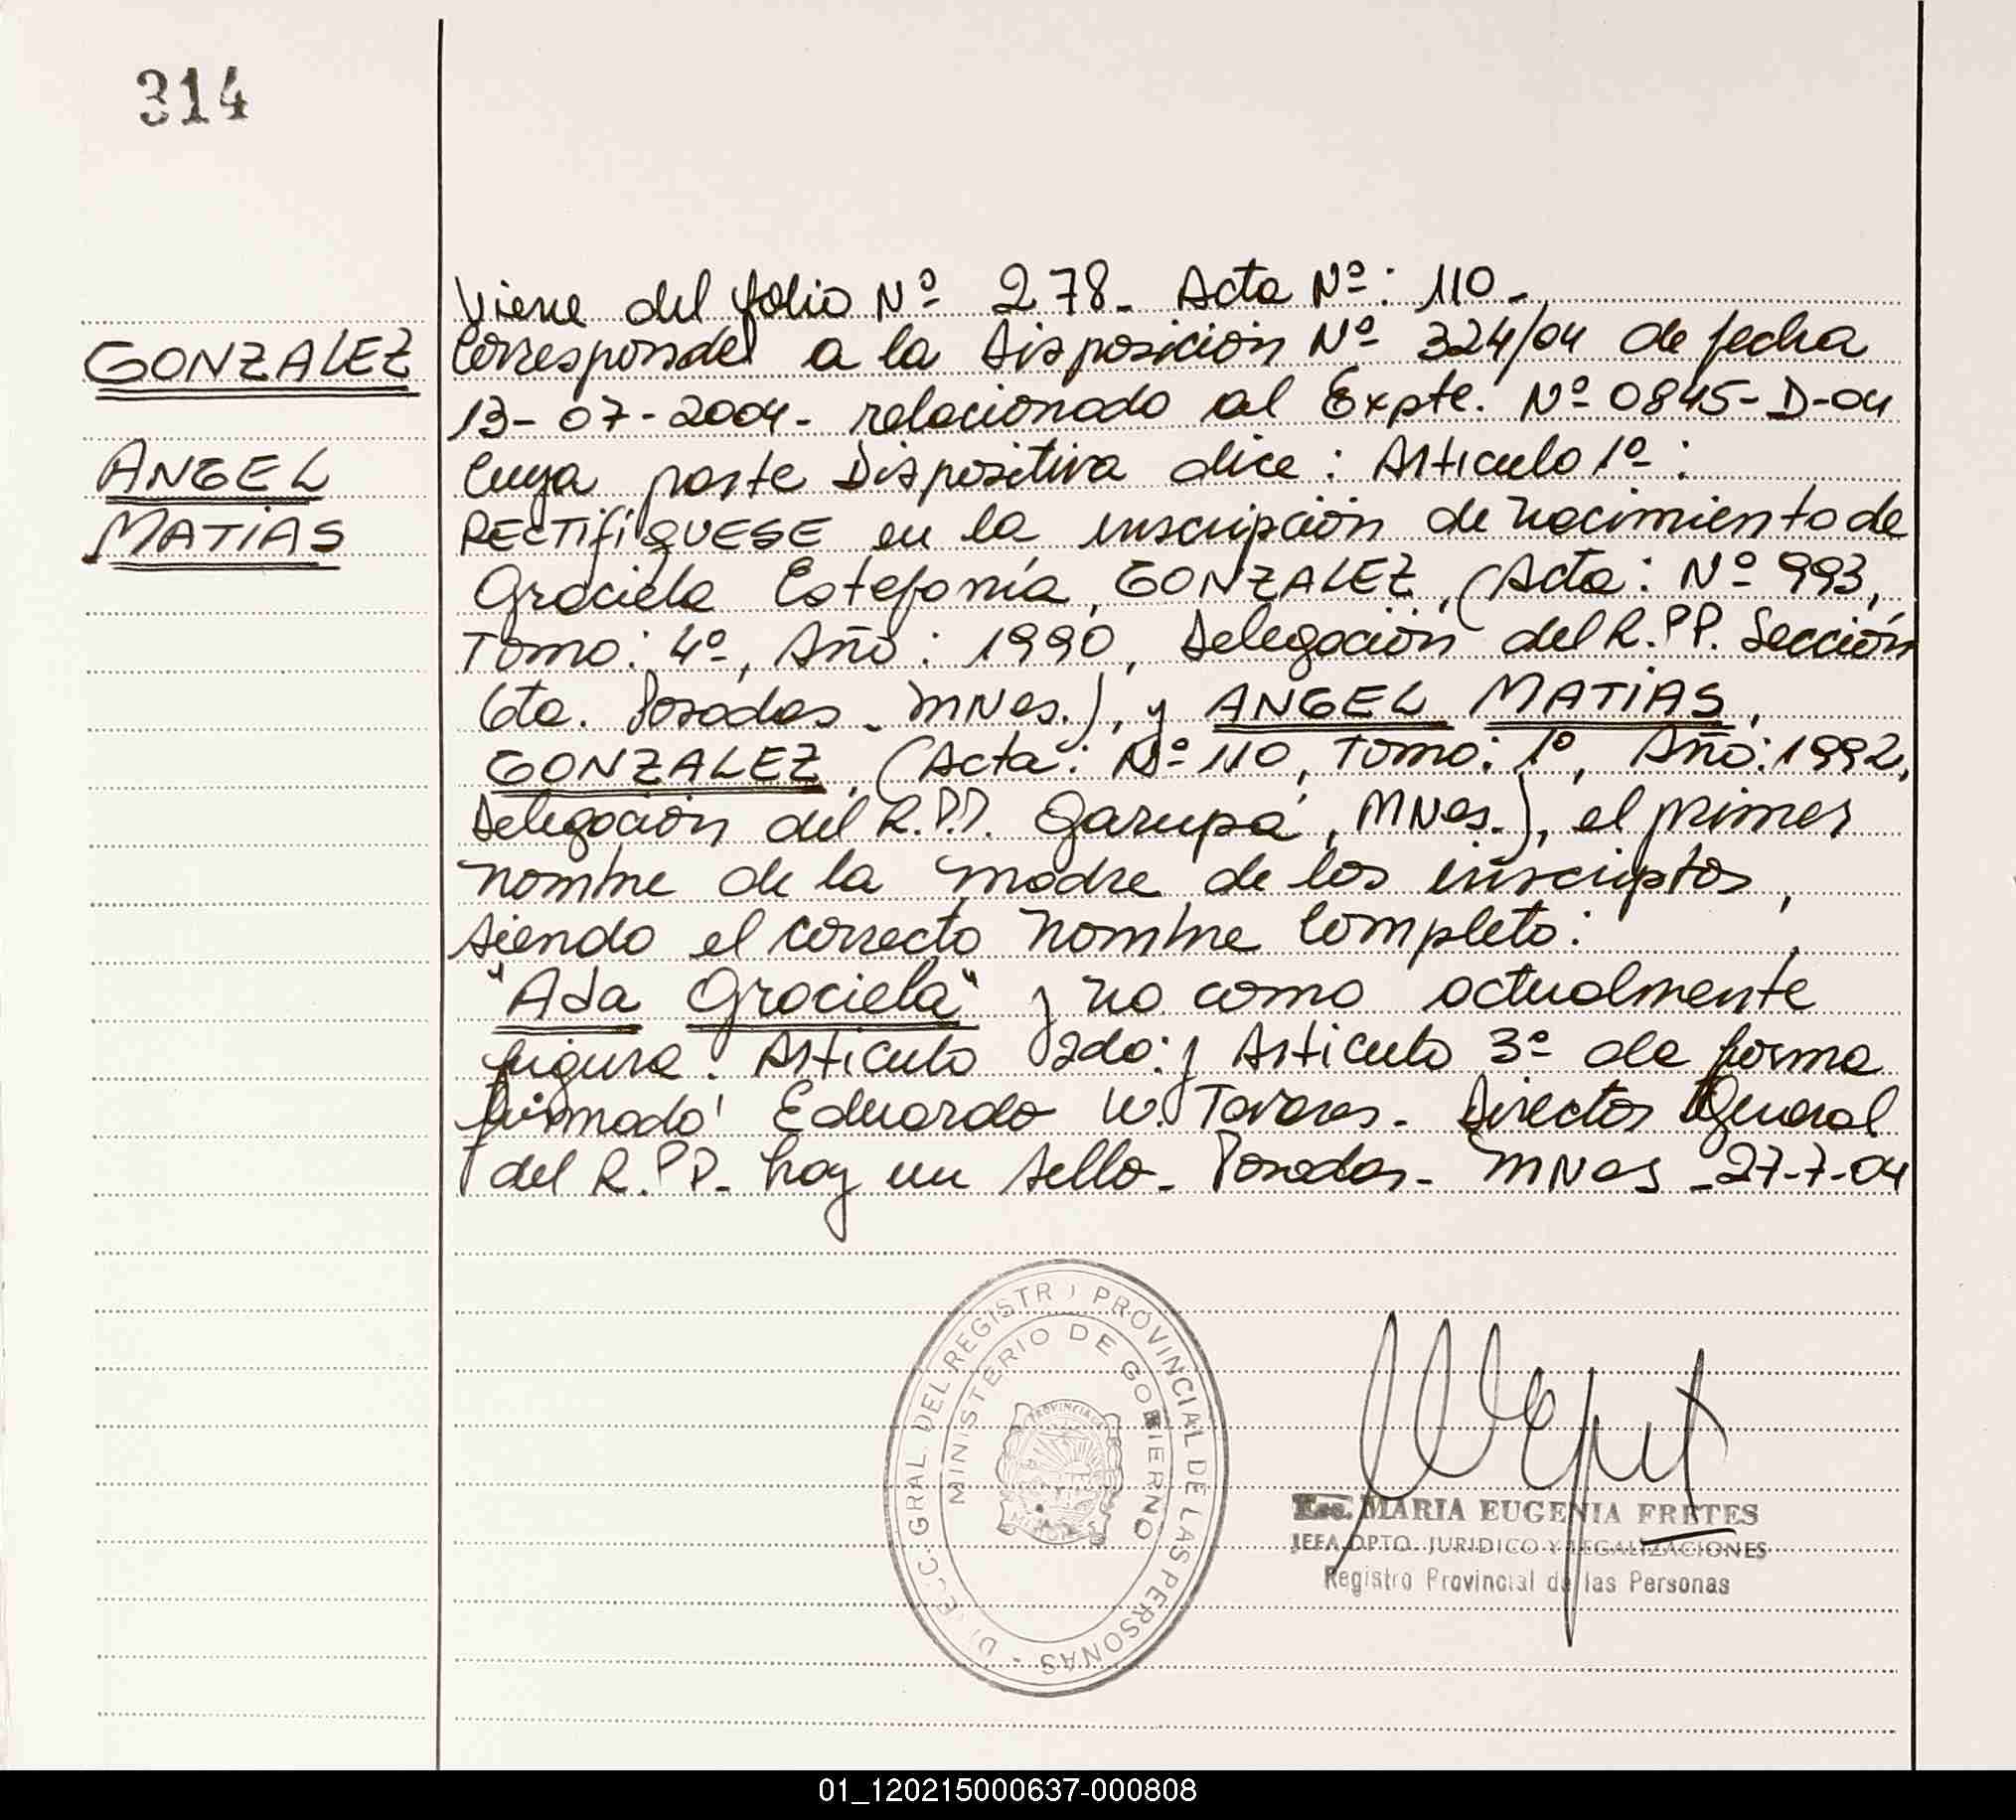 314
Viene del folio Nº 278- Acta Nº: 110-
GONZALEZ
Corresponde a la Disposición Nº 324/04 de fecha
13-07-2004- relacionado al Expte. Nº 0845-D-04
ANGEL
Cuya parte Dispositiva dice: Articulo 1º:
MATIAS
RECTIFIQUESE en la inscripción de nacimiento de
Graciela Estefanía, GONZALEZ, (Acta: Nº 993,
Tomo: 4º, Año: 1990, Delegación del R.P.P. Sección
6ta. Posadas - MNes.), y ANGEL MATIAS,
GONZALEZ, (Acta: Nº 110, Tomo: 1º, Año: 1992,
Delegación del R.P.P. Garupá, MNes.), el primer
nombre de la madre de los inscriptos,
siendo el correcto nombre completo:
"Ada Graciela" y no como actualmente
figura. Articulo 2do: y Articulo 3º de forma
firmado Eduardo W. Tavares- Director General
del R.P.P- hay un sello- Posadas- MNes -27-7-04
DIRECC. GRAL. DEL REGISTRO PROVINCIAL DE LAS PERSONAS -
MINISTERIO DE GOBIERNO
PROVINCIA DE
Esc. MARIA EUGENIA FRETES
JEFA DPTO. JURIDICO Y LEGALIZACIONES
Registro Provincial de las Personas
01_120215000637-000808